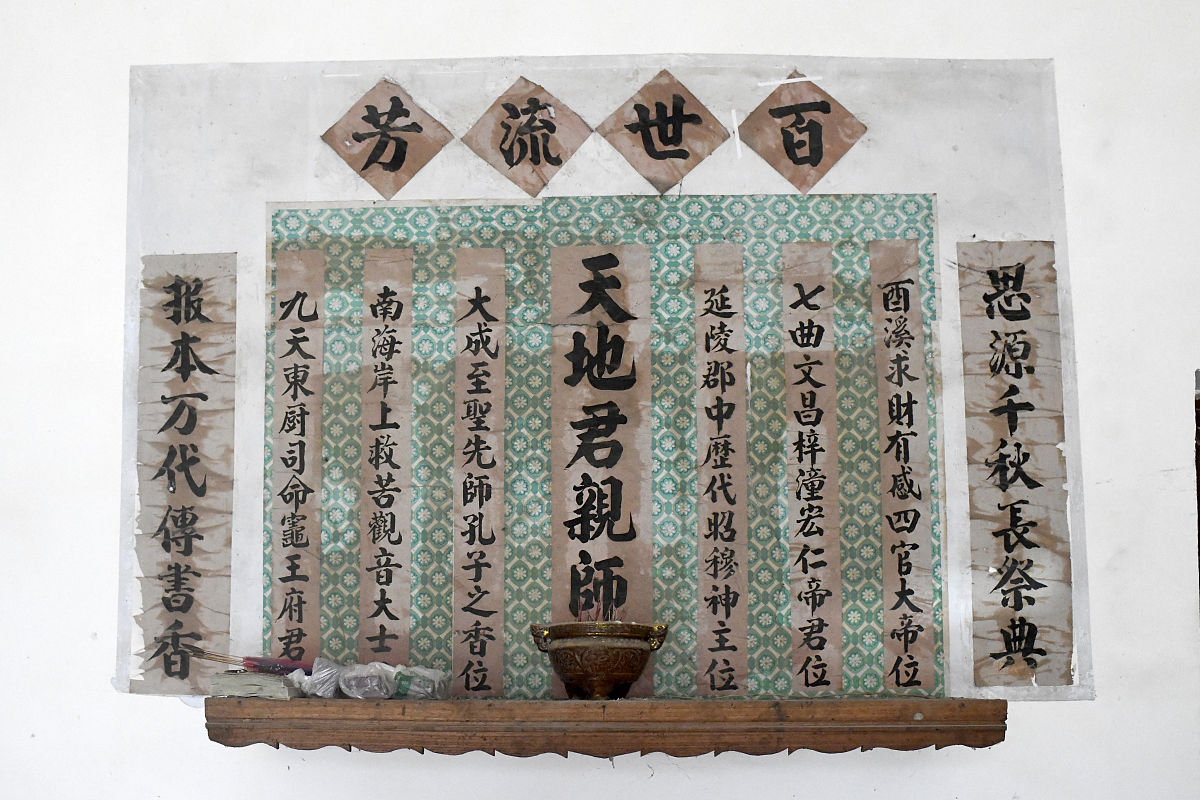 百世流芳
思源千秋長祭典
酉溪求財有感四官大帝位
七曲文昌梓潼宏仁帝君位
延陵郡中歷代昭穆神主位
天地君親師
大成至聖先師孔子之香位
南海岸上救苦觀音大士
九天東厨司命竈王府君
报本万代傳書香